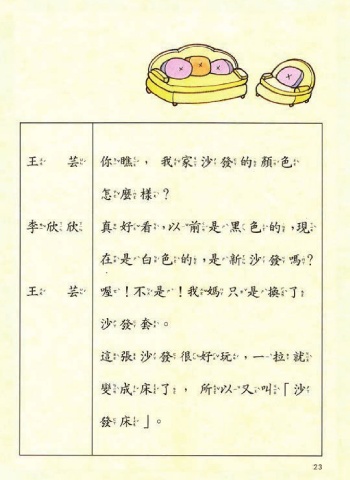 王芸 你瞧，我家沙發的顏色
怎麼樣？
李欣欣 真好看，以前是黑色的，現
在是白色的，是新沙發嗎？
王芸 喔！不是！我媽只是換了
沙發套。
這張沙發很好玩，一拉就
變成床了，所以又叫「沙
發床」。
23